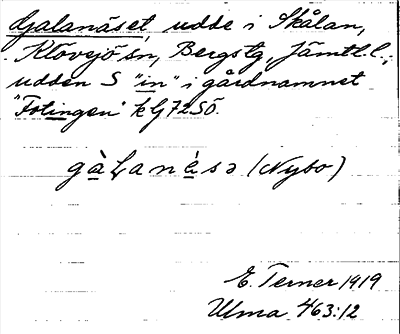 Gjalanäset udde i Skålan,
Klövsjö sn, Bergs tg, Jämtl.l.;
udden S "in" i gårdnamnet
"Fotingen" k G7250.
gàlanèsə (Nybo)
E. Terner 1919
Ulma 463:12